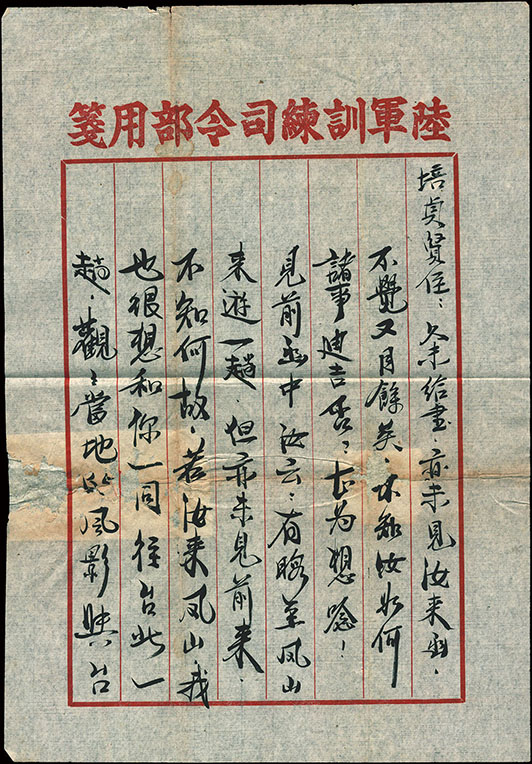 陸軍訓練司令部用箋
培貞賢侄：久未給書，亦未見汝來函，
不覺又月餘矣，不知汝如何
諸事迪吉否？甚為想念！
見前函中汝云：有暇至鳳山
來遊一趟，但亦未見前來，
不知何故，若汝來鳳山，我
也很想和你一同往台北一
趟，觀觀當地的風影與台